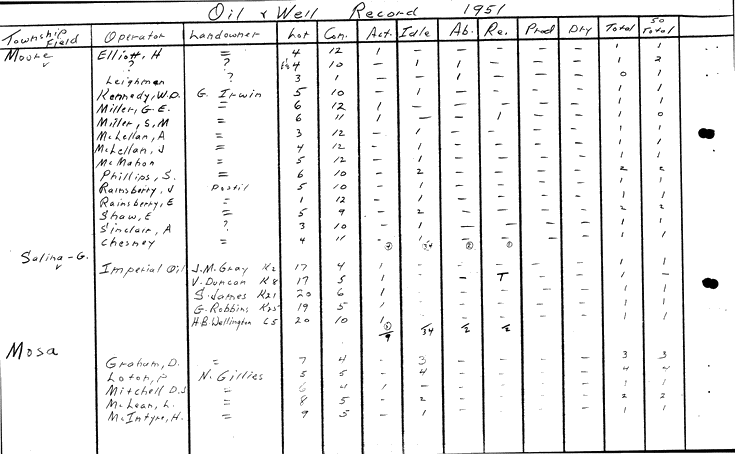 Oil & Well Record 1951
Township Field Operator Landowner Lot Con. Act. Idle Ab. Re. Prod Dry Total 50 Total
Moore Elliott, H = 4 12 1 - - - - - 1 1
? ? ½ 4 10 - 1 1 - - - 1 2
Leighman ? 3 1 - - 1 - - - 0 1
Kennedy, W.D. G. Irwin 5 10 - 1 - - - - 1 1
Miller, G.E. = 6 12 1 - - - - - 1 1
Miller, S.M = 6 11 1 - - 1 - - 1 0
McLellan, A = 3 12 - 1 - - - - 1 1
McLellan, J = 4 12 - 1 - - - - 1 1
McMahon = 5 12 - 1 - - - - 1 1
Phillips, S. = 6 10 - 2 - - - - 2 2
Rainsberry, J Postil 5 10 - 1 - - - - 1 1
Rainsberry, E = 1 12 - 1 - - - - 1 1
Shaw, E = 5 9 - 2 - - - - 2 2
Sinclair, A ? 3 10 - 1 - - - - 1 1
Chesney = 4 11 - 1 - - - - 1 1
Salina-G. Imperial Oil J.M. Gray K2 17 4 1 - - - - - 1 1
V. Duncan K8 17 5 1 - - T - - 1 -
S. James K21 20 6 1 - - - - - 1 1
G. Robbins K25 19 5 1 - - - - - 1 1
H.B. Wellington L5 20 10 1 - - - - - 1 1
9 34 2 2
Mosa
Graham, D. = 7 4 - 3 - - - - 3 3
Loton, P N. Gillies 5 5 - 4 - - - - 4 4
Mitchell D.J = 6 4 1 - - - - - 1 1
McLean, L. = 8 5 - 2 - - - - 2 2
McIntyre, H. = 9 5 - 1 - - - - 1 1